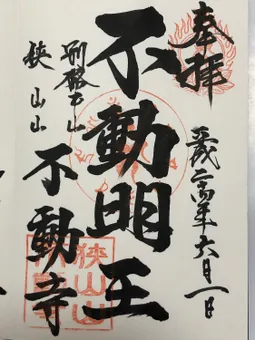 奉拝
平成二十四年六月一日
不動明王
別格本山
狭山山
不動寺
狭山山